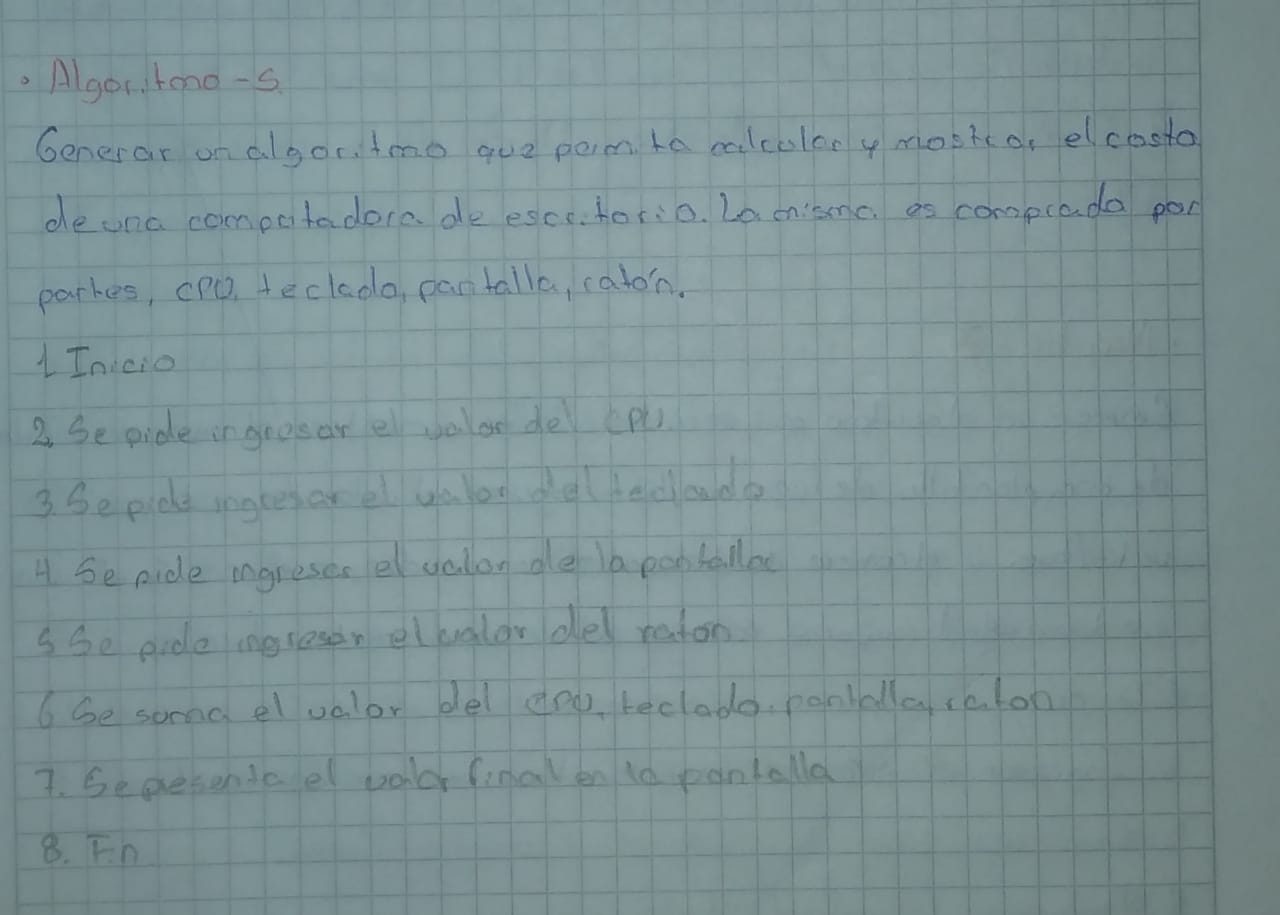 • Algoritmo - 5
Generar un algoritmo que permita calcular y mostrar el costo
de una computadora de escritorio. La misma es comprada por
partes, CPU, teclado, pantalla, ratón.
1 Inicio
2. Se pide ingresar el valor del CPU
3 Se pide ingresar el valor del teclado
4. Se pide ingresar el valor de la pantalla
5 Se pide ingresar el valor del raton
6 Se suma el valor del CPU, teclado, pantalla, raton
7. Se presenta el valor final en la pantalla
8. Fin